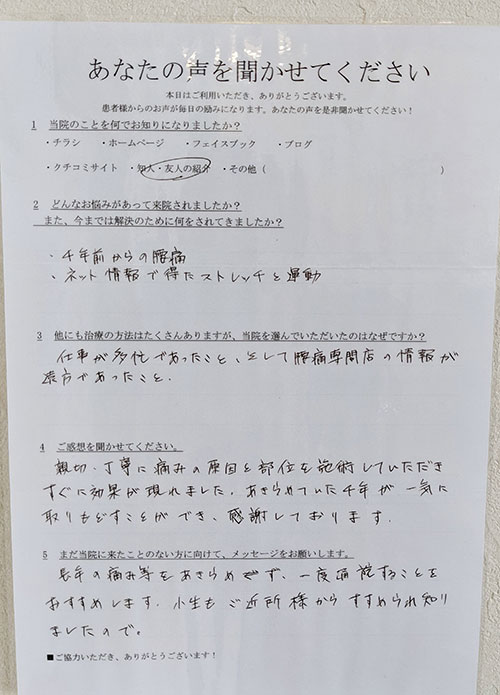 あなたの声を聞かせてください
本日はご利用いただき、ありがとうございます。
患者様からのお声が毎日の励みになります。あなたの声を是非聞かせてください！
1 当院のことを何でお知りになりましたか？
・チラシ ・ホームページ ・フェイスブック ・ブログ
・クチコミサイト ・知人・友人の紹介 ・その他（ ）
2 どんなお悩みがあって来院されましたか？
また、今までは解決のために何をされてきましたか？
・千年前からの腰痛
・ネット情報で得たストレッチと運動
3 他にも治療の方法はたくさんありますが、当院を選んでいただいたのはなぜですか？
仕事が多忙であったこと、そして腰痛専門店の情報が
遠方であったこと.
4 ご感想を聞かせてください。
親切・丁寧に痛みの原因と部位を施術していただき
すぐに効果が現れました. あきらめていた千年が一気に
取りもどすことができ、感謝しております.
5 まだ当院に来たことのない方に向けて、メッセージをお願いします。
長年の痛み等をあきらめせず、一度通院することを
おすすめします. 小生もご近所様からすすめられ知り
ましたので。
■ご協力いただき、ありがとうございます！